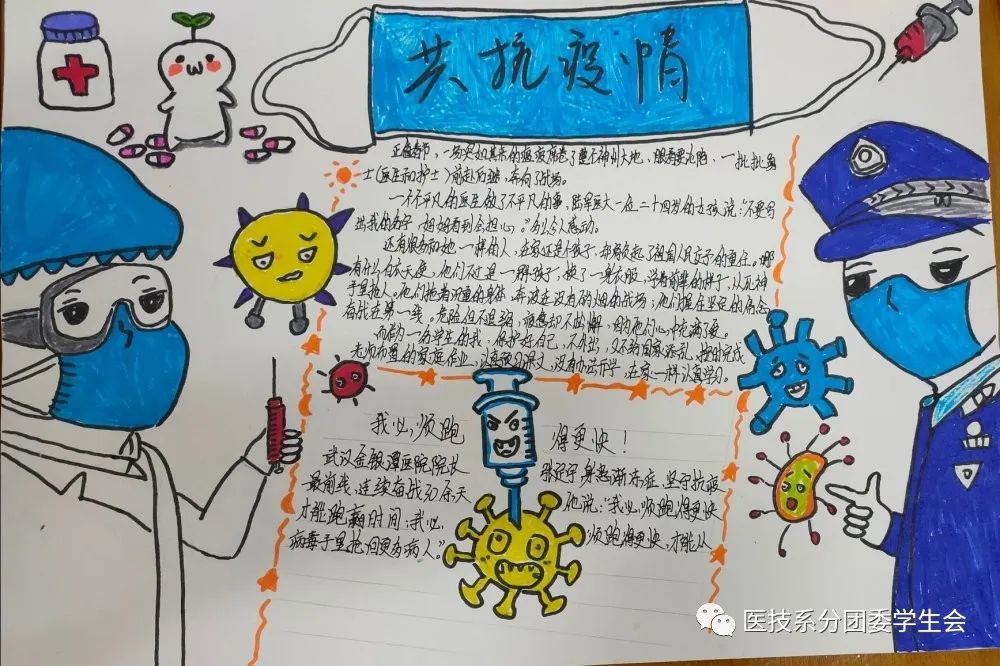 共抗疫情
正值春节，一场突如其来的瘟疫席卷了整个神州大地，眼看要沦陷，一批批勇
士（医生和护士）前赴后继，奔向了战场。
一个不平凡的医生做了不平凡的事，陆军医大一位二十四岁的女孩说：“不要写
出我的名字，妈妈看到会担心。”多么令人感动。
还有很多和她一样的人，在家还是个孩子，却肩负起了祖国人民交予的重任，哪
有什么白衣天使，他们不过是一群孩子，换了一身衣服，学着前辈的样子，从死神
手里抢人。他们拖着沉重的身体，奔波在没有硝烟的战场；他们握着坚定的信念
奋战在第一线。危险但不退缩，疲惫却不松懈，
而做为一名学生的我，保护好自己，不外出，不给国家添乱，按时完成
老师布置的家庭作业，认真预习课文，没有办法开学，在家一样认真学习。
我必须跑 得更快！
武汉金银潭医院院长 张定宇身患渐冻症，坚守抗疫
最前线，连续奋战30余天 他说：“我必须跑得更快
才能跑赢时间；我必 须跑得更快，才能从
病毒手里抢回更多病人。”
医技系分团委学生会